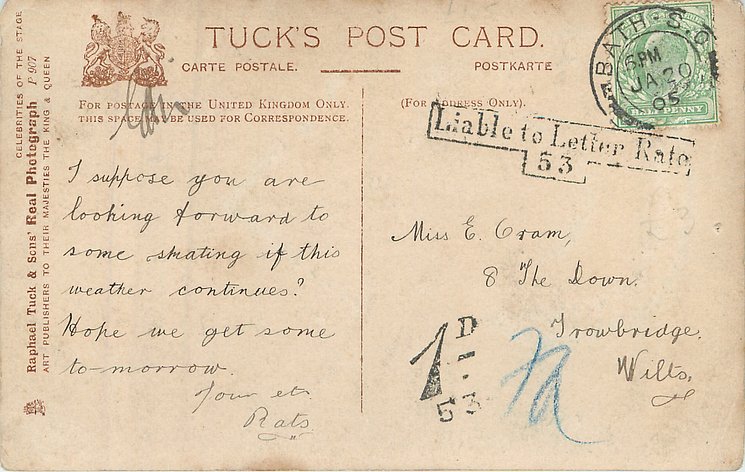 TUCK'S POST CARD.
CARTE POSTALE.
POSTKARTE
FOR POSTAGE IN THE UNITED KINGDOM ONLY.
THIS SPACE MAY BE USED FOR CORRESPONDENCE.
(FOR ADDRESS ONLY).
CELEBRITIES OF THE STAGE.
Raphael Tuck & Sons' Real Photograph P 907
ART PUBLISHERS TO THEIR MAJESTIES THE KING & QUEEN
BATH·S.O
6 PM
JA 20
05
HALF PENNY
Liable to Letter Rate
53
I suppose you are
looking forward to
some skating if this
weather continues?
Hope we get some
to-morrow.
Your etc
Rats
Miss E. Cram,
8 The Down.
Trowbridge.
Wilts.
1D
53